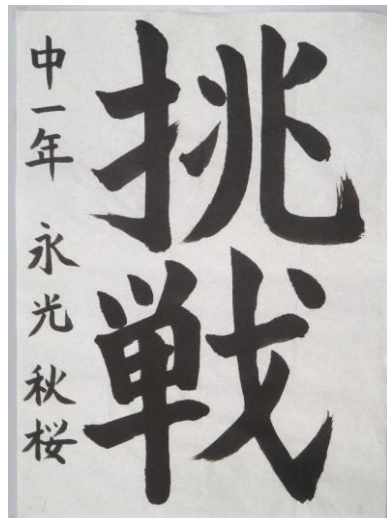 挑戦
中一年 永光 秋桜